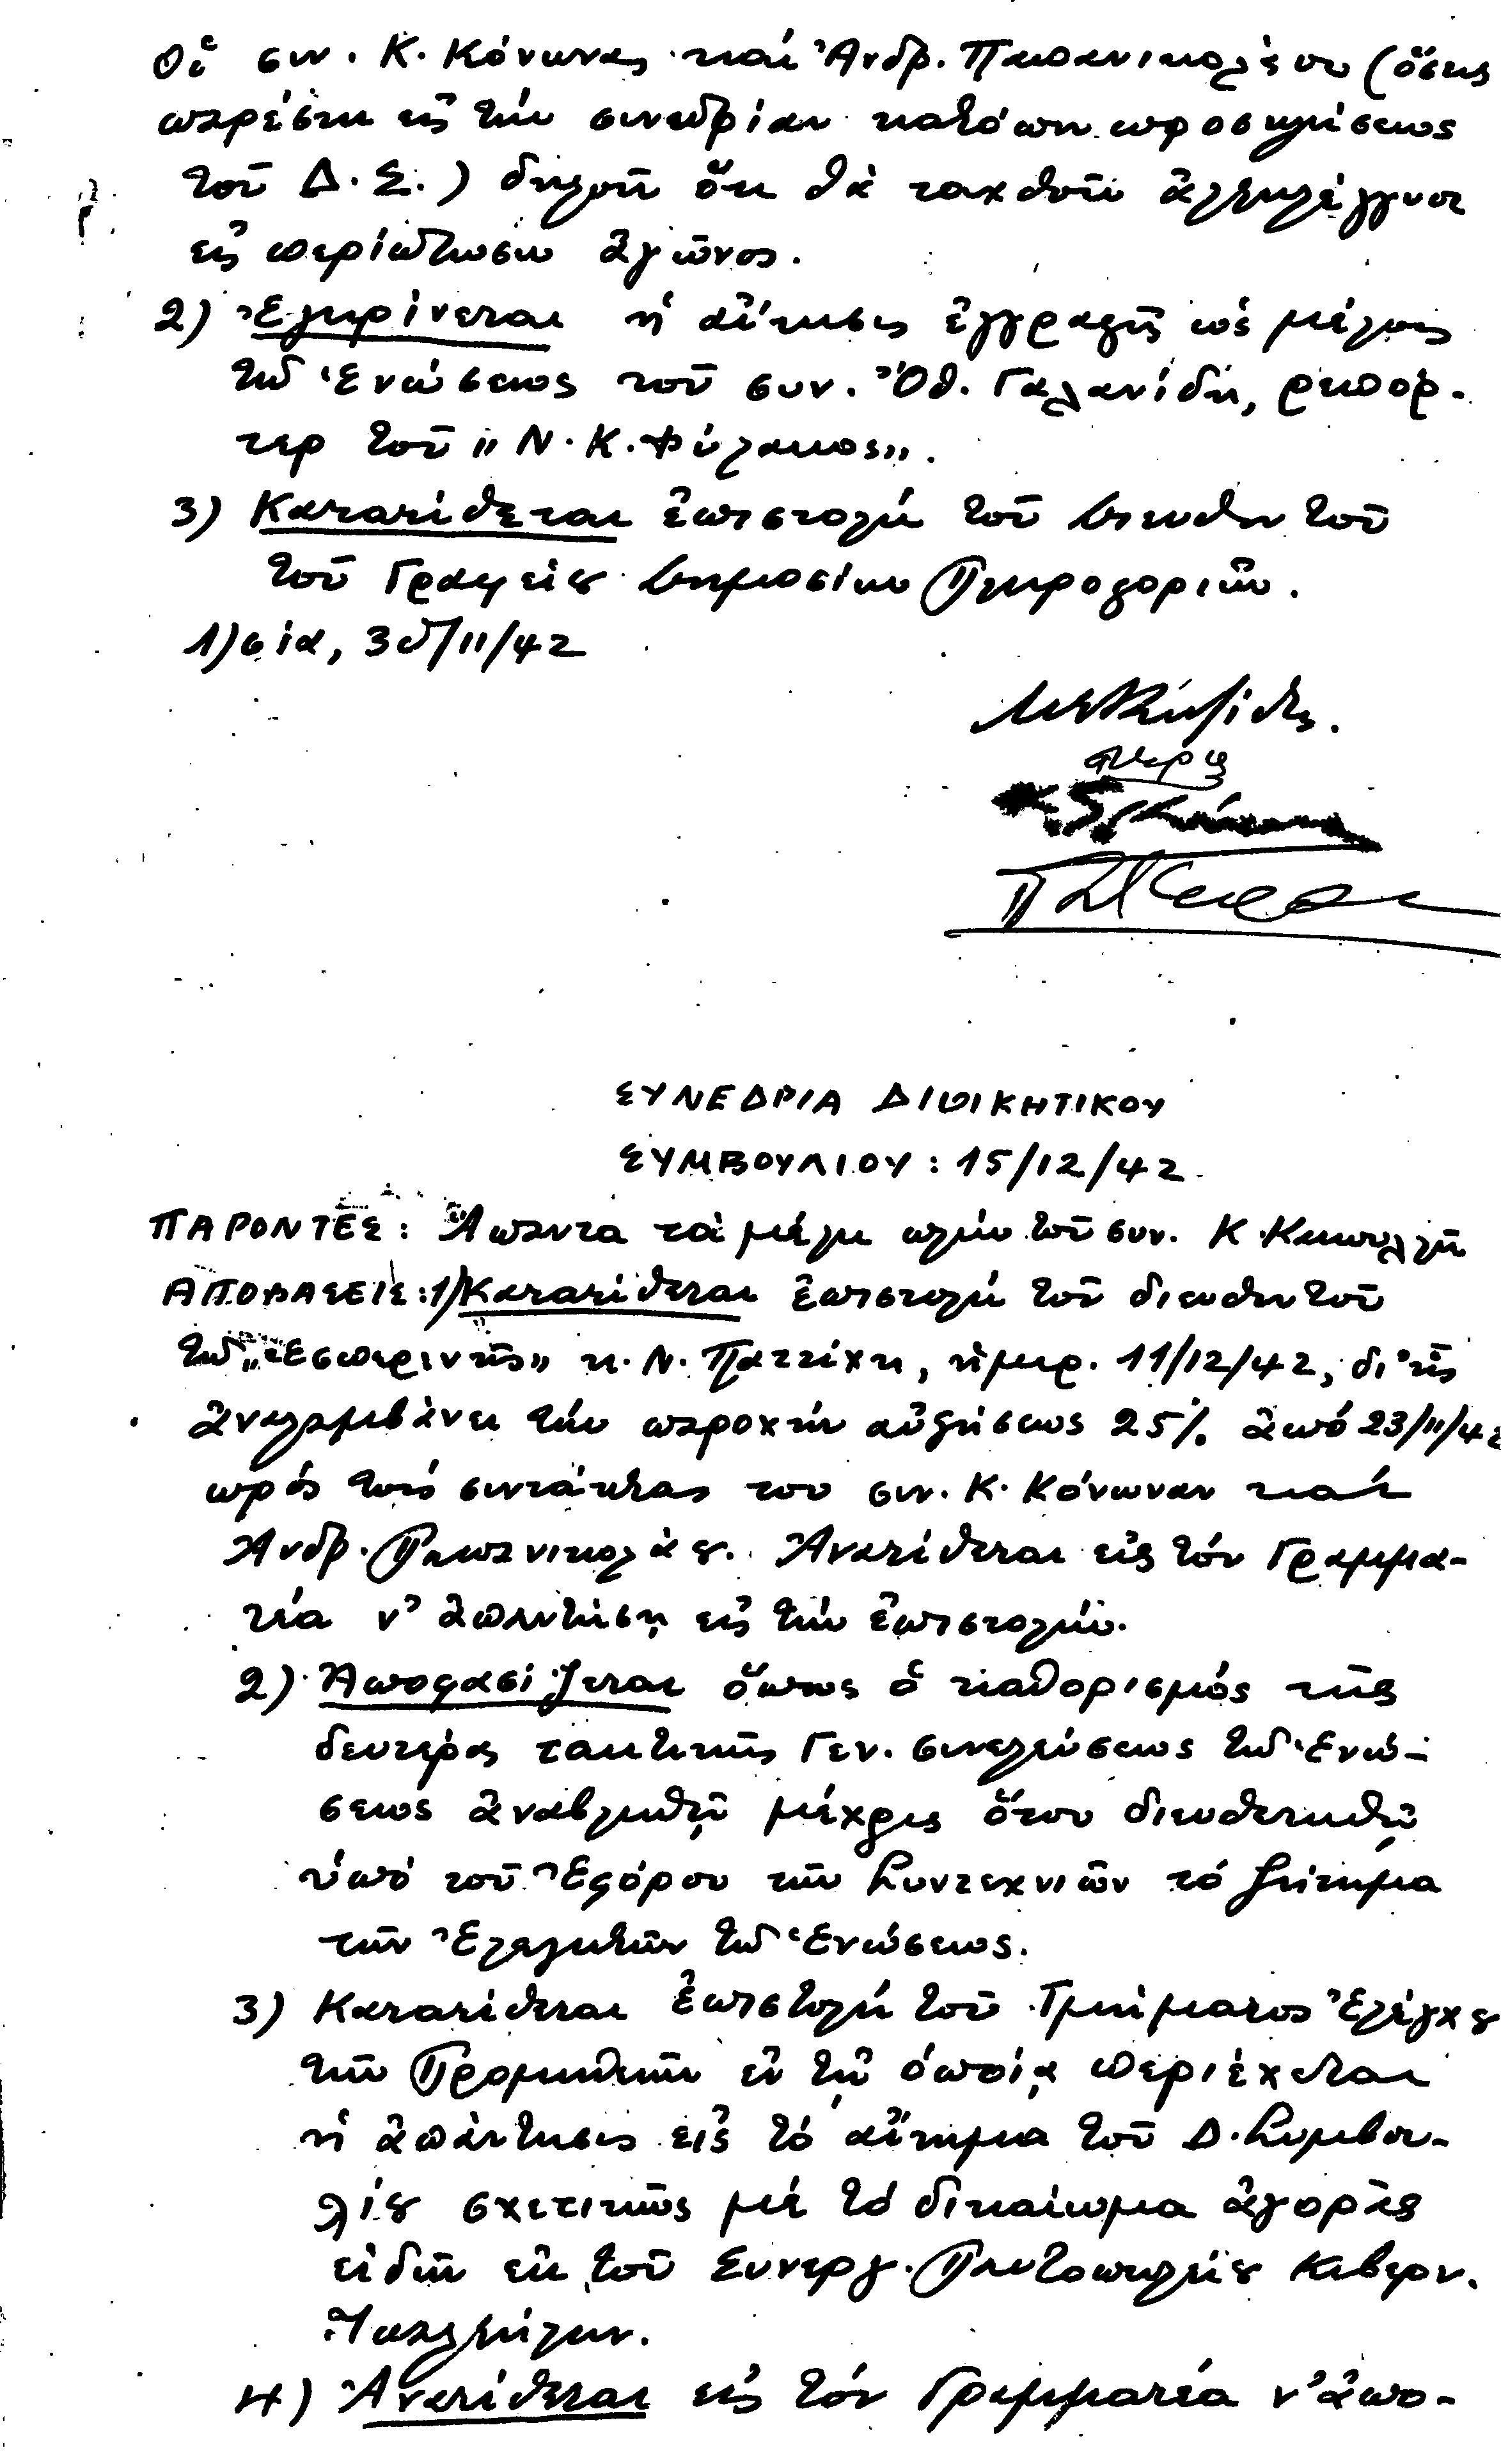 Οἱ συν. Κ. Κόνωνας καὶ Ἀνδρ. Παπανικολάου (ὅστις
παρέστη εἰς τὴν συνεδρίαν κατόπιν προσκλήσεως
τοῦ Δ.Σ.) δηλοῦν ὅτι θὰ ταχθοῦν ἀλληλέγγυοι
εἰς περίπτωσιν ἀγῶνος.
2) Ἐγκρίνεται ἡ αἴτησις ἐγγραφῆς ὡς μέλους
τῆς Ἑνώσεως τοῦ συν. Ὀθ. Γαλανίδη, ρεπόρ-
τερ τοῦ "Ν.Κ. Φύλακος".
3) Κατατίθεται ἐπιστολὴ τοῦ Διευθυντοῦ
τοῦ Γραφείου Δημοσίων Πληροφοριῶν.
Λ)σία, 30/11/42
ΣΥΝΕΔΡΙΑ ΔΙΟΙΚΗΤΙΚΟΥ
ΣΥΜΒΟΥΛΙΟΥ: 15/12/42
ΠΑΡΟΝΤΕΣ: Ἅπαντα τὰ μέλη πλὴν τοῦ συν. Κ.
ΑΠΟΦΑΣΕΙΣ: 1) Κατατίθεται ἐπιστολὴ τοῦ διευθυντοῦ
τῆς "Ἑσπερινῆς" κ. Ν. Παττίχη, ἡμερ. 11/12/42, δι' ἧς
ἀναλαμβάνει τὴν παροχὴν αὐξήσεως 25% ἀπό 23/11/42
πρὸς τοὺς συντάκτας του συν. Κ. Κόνωναν καὶ
Ἀνδρ. Παπανικολάου. Ἀνατίθεται εἰς τὸν Γραμμα-
τέα ν' ἀπαντήσῃ εἰς τὴν ἐπιστολήν.
2) Ἀποφασίζεται ὅπως ὁ καθορισμὸς τῆς
δευτέρας τακτικῆς Γεν. συνελεύσεως τῆς Ἑνώ-
σεως ἀναβληθῇ μέχρις ὅτου διευθετηθῇ
ὑπὸ τοῦ Ἐφόρου τῶν Συντεχνιῶν τὸ ζήτημα
τῶν Ἐλεγκτῶν τῆς Ἑνώσεως.
3) Κατατίθεται ἐπιστολὴ τοῦ Τμήματος Ἐλέγχου
τῶν Προμηθειῶν ἐν τῇ ὁποίᾳ περιέχεται
ἡ ἀπάντησις εἰς τὸ αἴτημα τοῦ Δ. Συμβου-
λίου σχετικῶς μὲ τὸ δικαίωμα ἀγορᾶς
εἰδῶν ἐκ τοῦ Συνεργ. Παντοπωλείου Κυβερν.
Ὑπαλλήλων.
4) Ἀνατίθεται εἰς τὸν Γραμματέα ν' ἀπο-